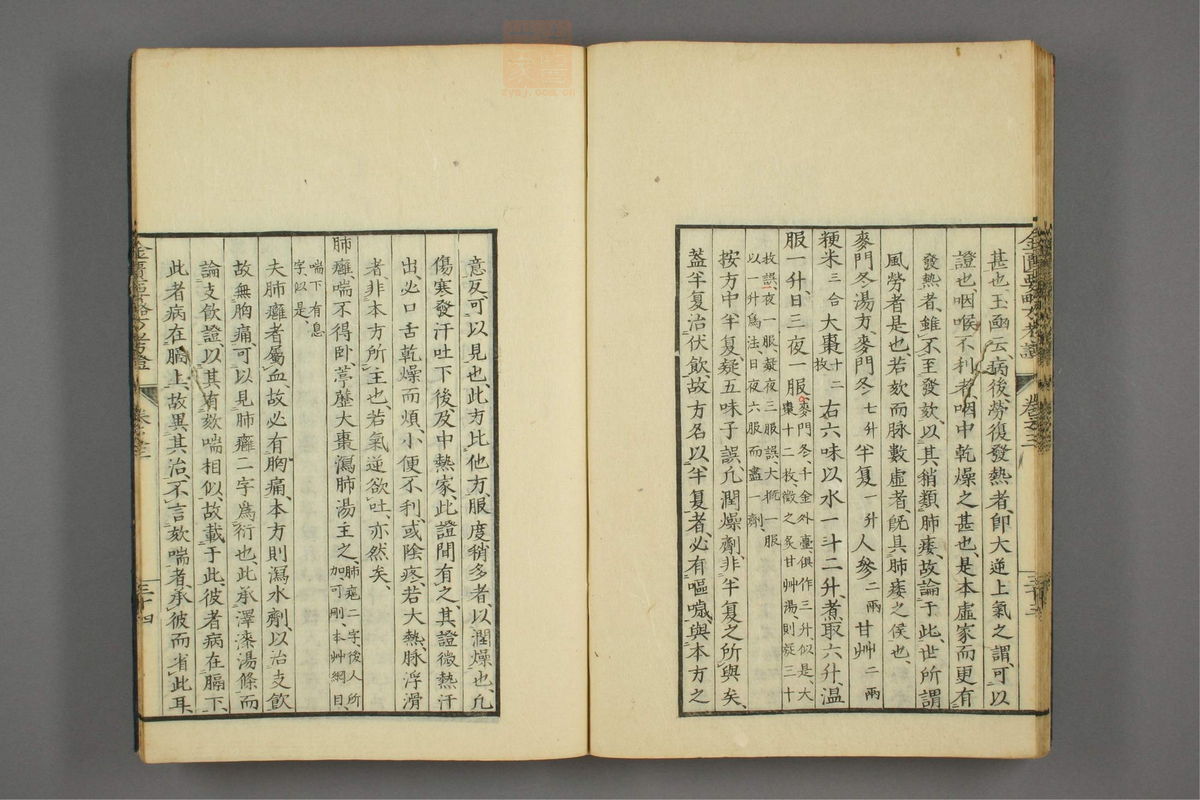 甚也、玉函云、病後勞復發熱者、卽大逆上氣之謂、可以
證也、咽喉不利者、咽中乾燥之甚也、是本虛家而更有
發熱者、雖不至發欬、以其稍類肺痿、故論于此、世所謂
風勞者是也、若欬而脉數虛者、既具肺痿之候也、
麥門冬湯方、麥門冬七升半夏一升人參二兩甘艸二兩
粳米三合大棗十二枚右六味以水一斗二升、煮取六升、溫
服一升、日三夜一服、麥門冬千金外臺俱作三升似是、大
棗十二枚、徵之炙甘艸湯則疑三十
枚誤、夜一服、疑夜三服誤、大槪一服
以一升爲法、日夜六服而盡一劑、
按方中半夏疑五味子誤、凡潤燥劑、非半夏之所與矣、
蓋半夏治伏飮、故方名以半夏者、必有嘔噦、與本方之
意反、可以見也、此方比他方、服度稍多者、以潤燥也、凡
傷寒發汗吐下後、及中熱家、此證間有之、其證微熱汗
出、必口舌乾燥而煩、小便不利、或陰疼、若大熱、脉浮滑
者、非本方所主也、若氣逆欲吐、亦然矣、
肺癰、喘不得卧、葶藶大棗瀉肺湯主之、肺癰二字、後人所
加、可刪、本艸綱目、
喘下有息
字、似是、
夫肺癰者屬血、故必有胸痛、本方則瀉水劑、以治支飮
故無胸痛、可以見肺癰二字爲衍也、此承澤漆湯條而
論支飮證、以其有欬喘相似、故載于此、彼者病在膈下、
此者病在膈上、故異其治、不言欬喘者、承彼而省此耳、